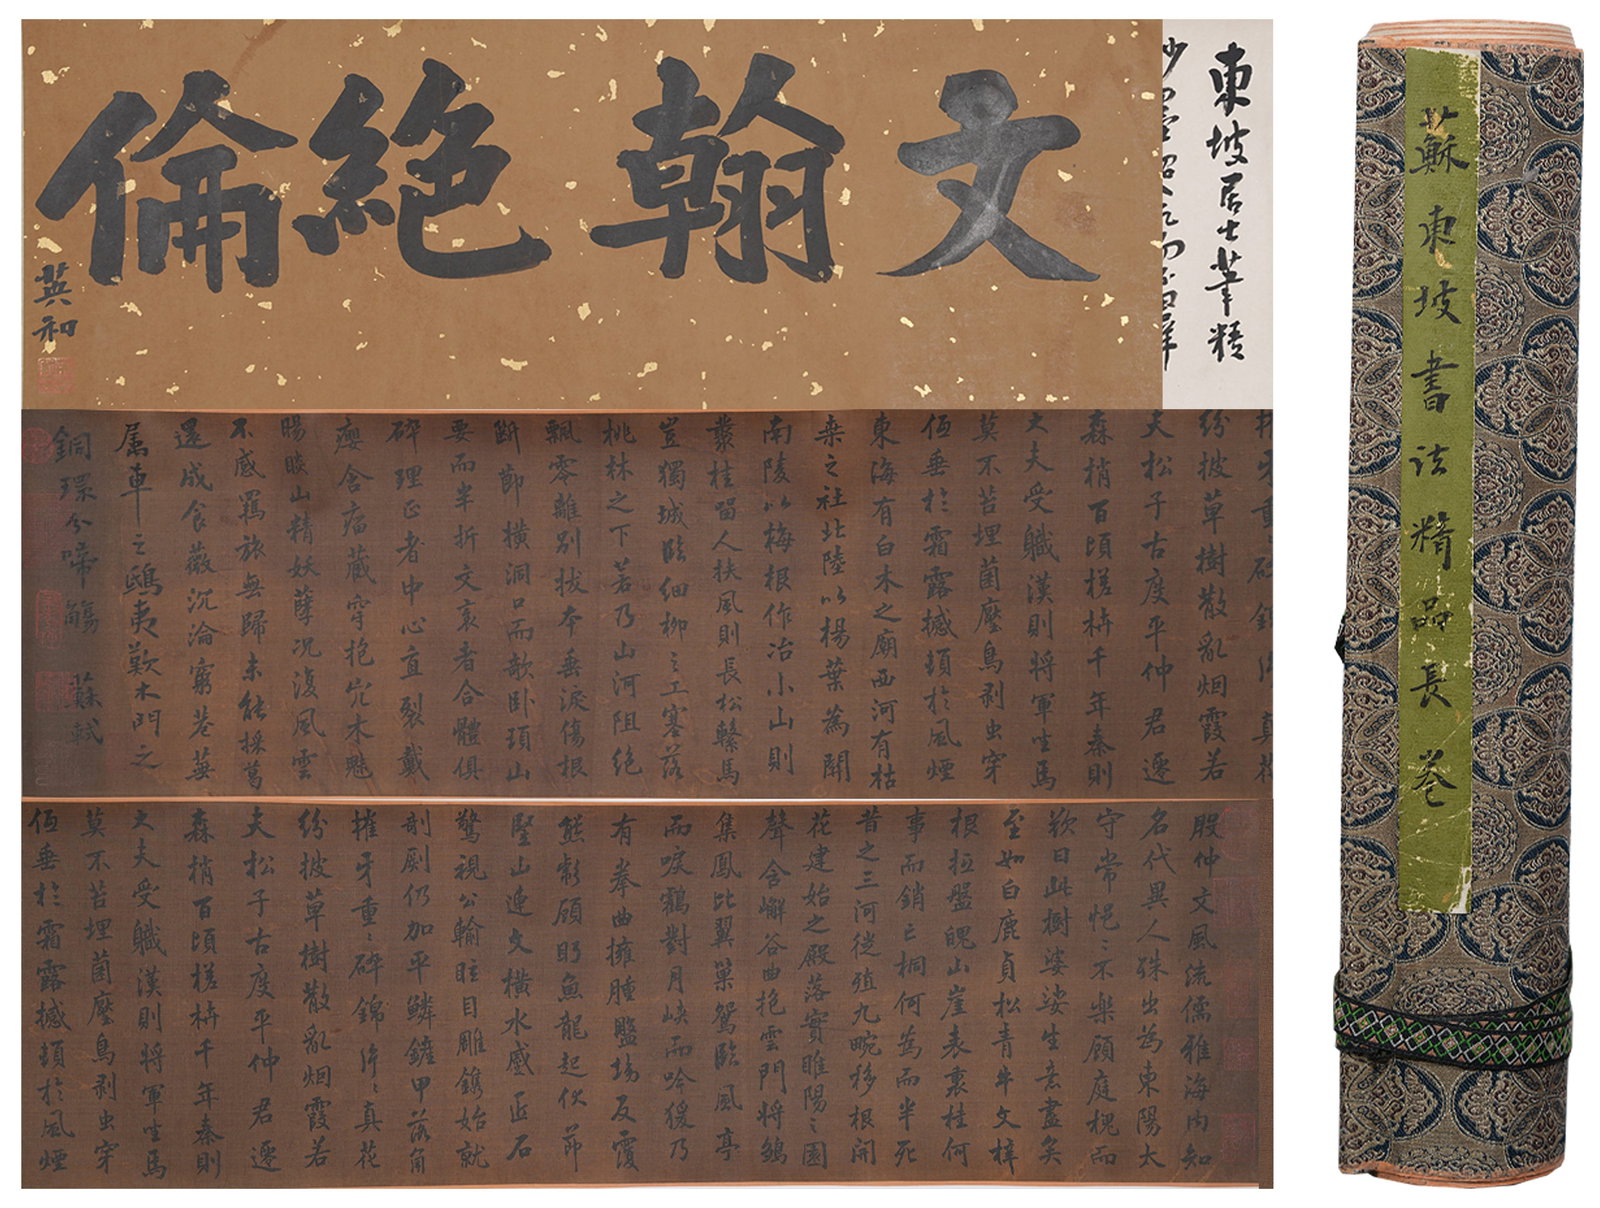 文翰絕倫
英和
東坡居士筆精
摧牙重〻碎錦片〻真花
紛披草樹散亂烟霞若
夫松子古度平仲君遷
森梢百頃槎枿千年秦則
大夫受職漢則將軍坐焉
莫不苔埋菌壓鳥剥虫穿
低垂於霜露撼頓於風煙
東海有白木之廟西河有枯
桒之社北陸以楊葉為開
南陵以梅根作冶小山則
叢桂留人扶風則長松繫馬
豈獨城臨細柳之上塞落
桃林之下若乃山河阻絕
飄零離別拔本垂淚傷根
斷節橫洞口而欹卧頊山
要而半折文衺者合體俱
碎理正者中心直裂戴
癭含瘤藏穿抱穴木魅
晹睒山精妖孽況復風雲
不感羈旅無歸未能採葛
還成食薇沉淪窮巷蕪
属車之鴟夷歎木門之
銅環兮啼觴 蘇軾
殷仲文風流儒雅海內知
名代異人殊出為東陽太
守常悒〻不樂顧庭槐而
歎曰此樹婆娑生意盡矣
至如白鹿貞松青牛文梓
根抵盤魄山崖表裏桂何
事而銷亡桐何為而半死
昔之三河徙殖九畹移根開
花建始之殿落實睢陽之園
聲含嶰谷曲抱雲門將鶵
集鳳比翼巢鴛臨風亭
而唳鶴對月峽而吟猨乃
有拳曲擁腫盤坳反覆
熊彪顧盼魚龍起伏節
豎山連文橫水蹙匠石
驚視公輸眩目雕鐫始就
剞劂仍加平鱗鏟甲落角
摧牙重〻碎錦片〻真花
紛披草樹散亂烟霞若
夫松子古度平仲君遷
森梢百頃槎枿千年秦則
大夫受職漢則將軍坐焉
莫不苔埋菌壓鳥剥虫穿
低垂於霜露撼頓於風煙
蘇東坡書法精品長卷